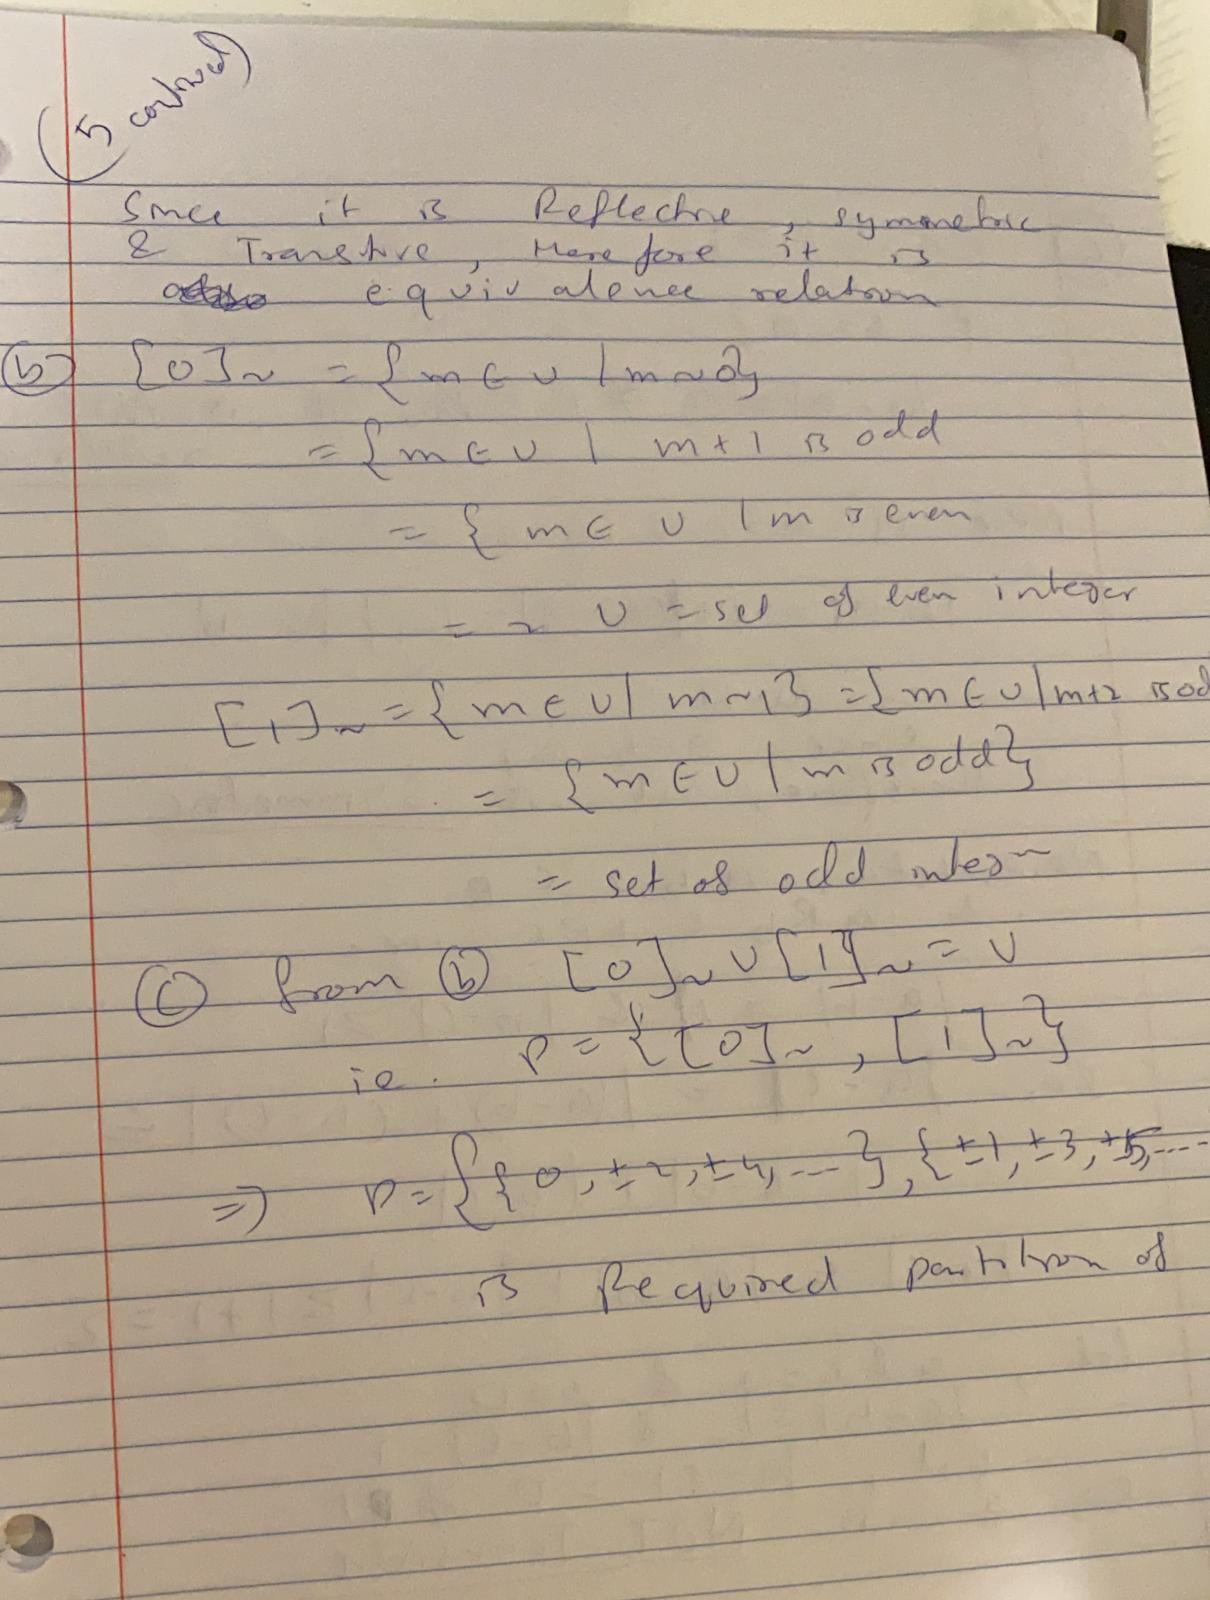 (5 continued)
Since it is Reflective, symmetric
& Transitive, therefore it is
equivalence relation
(b) [0]~ = {m ∈ U | m~0}
= {m ∈ U | m+1 is odd
= { m ∈ U | m is even
= 2 U = set of even integer
[1]~ = {m ∈ U | m~1} = {m ∈ U | m+2 is od
= {m ∈ U | m is odd}
= set of odd
(c) from (b) [0]~ ∪ [1]~ = U
ie. P = {[0]~, [1]~}
=) P = {{0, ±2, ±4, ---}, {±1, ±3, ±5, ----
is Required partition of